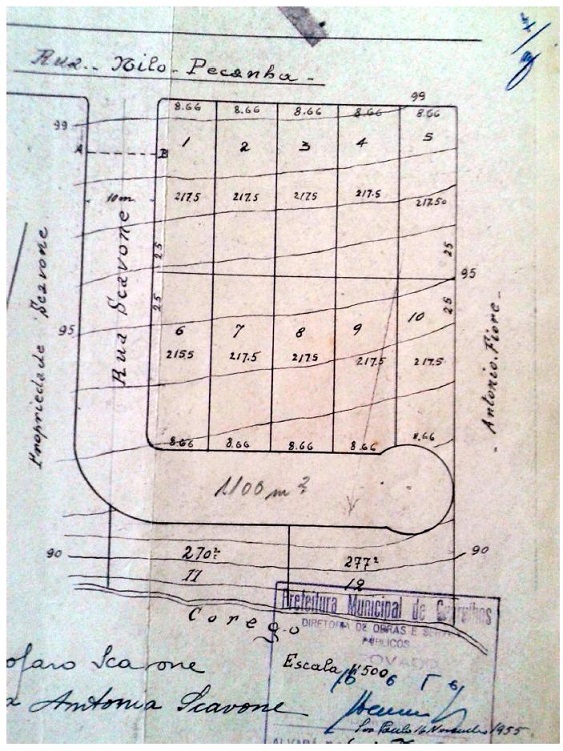 Rua Nilo Peçanha
99
8.66 8.66 8.66 8.66 8.66
99
1 2 3 4 5
A B
10m
217.5 217.5 217.5 217.5 217.50
Propriedade Scavone
Rua Scavone
25
25
25
25
95
95
Antonio Fiore
6 7 8 9 10
2155 217.5 217.5 217.5 217.5
8.66 8.66 8.66 8.66 8.66
1100 m²
90
90
270²
277²
11
12
Corego
Prefeitura Municipal de Guarulhos
DIRETORIA DE OBRAS E
PUBLICOS
Escala 1:500
Scavone
Antonia Scavone
São Paulo 16 Novembro 1955